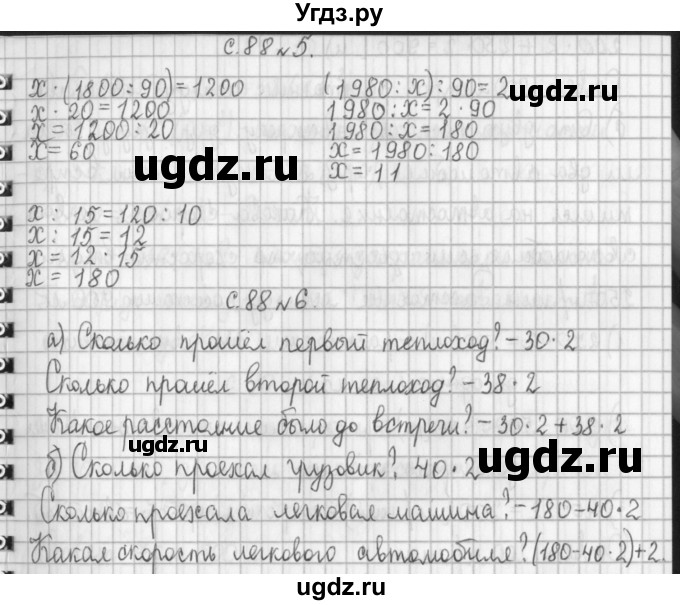 Угдз.ру
с.88 №5.
x · (1800:90)=1200
x · 20=1200
x=1200:20
x=60
(1980:x):90=2
1980:x=2·90
1980:x=180
x=1980:180
x=11
ugdz.ru
ugdz.ru
ugdz.ru
x:15=120:10
x:15=12
x=12·15
x=180
с.88 №6.
а) Сколько прошёл первый теплоход?-30·2
Сколько прошёл второй теплоход?-38·2
Какое расстояние было до встречи?-30·2+38·2
ugdz.ru
б) Сколько проехал грузовик? 40·2
ugdz.ru
Сколько проехала легковая машина?-180-40·2
Какая скорость легкового автомобиля?(180-40·2)+2.
ugdz.ru